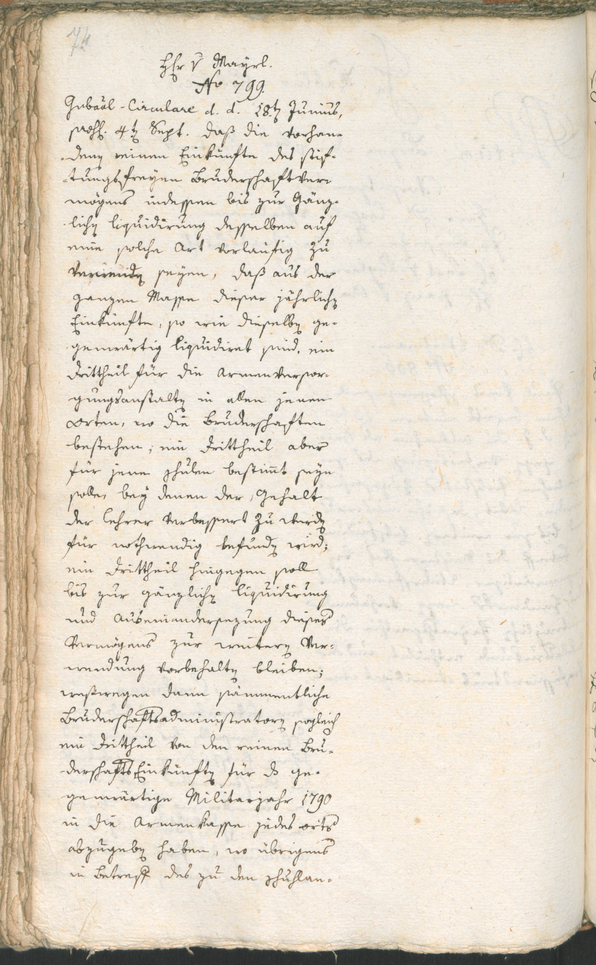 74
Hr v Mayrl.
No 799.
Gubral-Circulare d. d. 28tn Junius,
praes. 4tn Sept. daß die vorhan-
denen reinen Einkünfte des stif-
tungsfreyen Bruderschaftver-
mögens indessen bis zur Gänz-
lichen liquidirung desselben auf
eine solche Art vorläufig zu
verwenden seyen, daß aus der
ganzen Masse dieser jährlichen
Einkünfte, so wie dieselben ge-
genwärtig liquidiret sind, ein
drittheil für die Armenversor-
gungsanstalten in allen jenen
Orten, wo die Bruderschaften
bestehen, ein drittheil aber
für jene schulen bestimt seyn
solle, bey denen der Gehalt
der lehrer verbessert zu werden
für nothwendig befunden wird;
ein drittheil hingegen soll
bis zur gänzlichen liquidirung
und Auseinandersezung dieses
Vermögens zur weitern Ver-
wendung vorbehalten bleiben;
weßwegen dann sämmentliche
Bruderschaftsadministratorn sogleich
ein drittheil von den reinen Bru-
derschafts Einkünften für ds ge-
genwärtige Militarjahr 1790
in die Armenkasse jedes orts
abzugeben haben, wo übrigens
in betreff des zu den schullan-